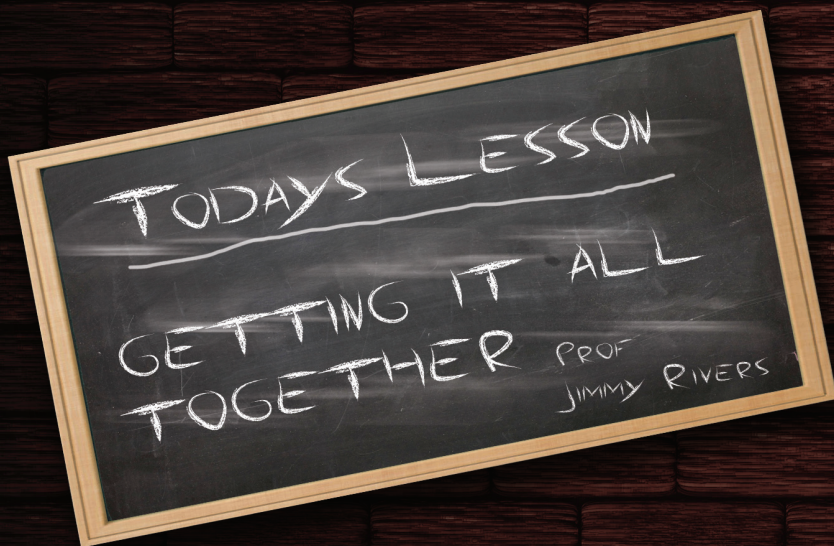 TODAYS LESSON
GETTING IT ALL
TOGETHER
PROF
JIMMY RIVERS